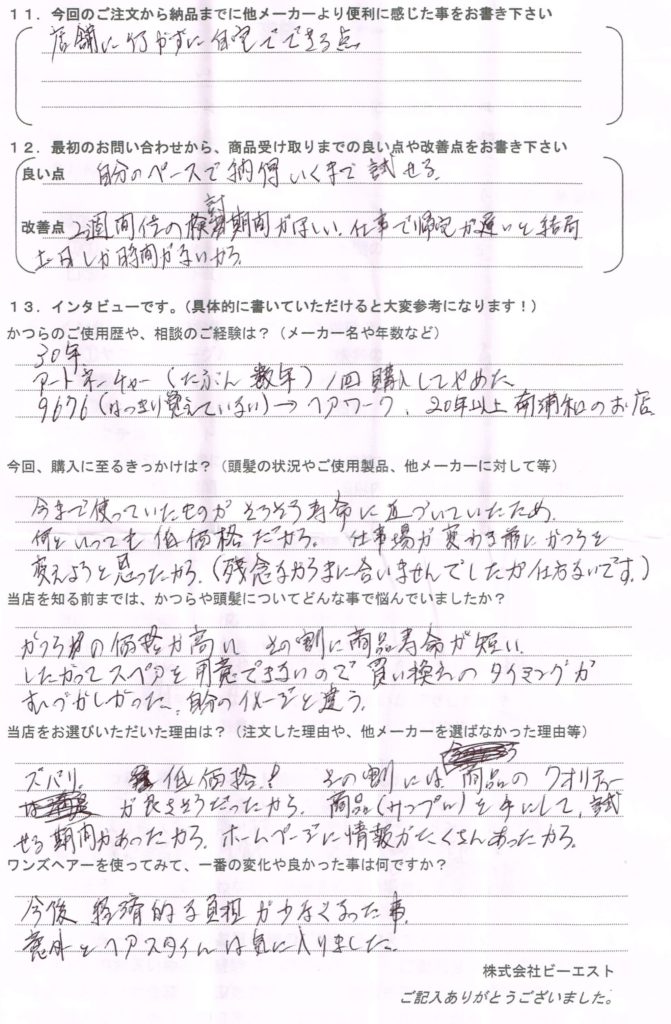 11．今回のご注文から納品までに他メーカーより便利に感じた事をお書き下さい
店舗に行かずに自宅でできる点
12．最初のお問い合わせから、商品受け取りまでの良い点や改善点をお書き下さい
良い点 自分のペースで納得いくまで試せる。
改善点 2週間位の検討期間がほしい。仕事で帰宅が遅いと結局
土日しか時間がないから。
13．インタビューです。（具体的に書いていただけると大変参考になります！）
かつらのご使用歴や、相談のご経験は？（メーカー名や年数など）
30年
アートネーチャー（たぶん数年）1回購入してやめた
9676（はっきり覚えていない）→ヘアワーク、20年以上南浦和のお店
今回、購入に至るきっかけは？（頭髪の状況やご使用製品、他メーカーに対して等）
今まで使っていたものがそろそろ寿命に近づいていたため。
何といっても低価格だから。 仕事場が変わる前にかつらを
変えようと思ったから。（残念ながらまに合いませんでしたが仕方ないです。）
当店を知る前までは、かつらや頭髪についてどんな事で悩んでいましたか？
かつらの価格が高い その割に商品寿命が短い。
したがってスペアを用意できないので買い換えのタイミングが
むづかしかった。自分のイメージと違う。
当店をお選びいただいた理由は？（注文した理由や、他メーカーを選ばなかった理由等）
ズバリ、 低価格！ その割には商品のクオリティー
が良さそうだったから。商品（サンプル）を手にして、試
せる期間があったから。ホームページに情報がたくさんあったから。
ワンズヘアーを使ってみて、一番の変化や良かった事は何ですか？
今後 経済的な負担が少なくなった事。
意外とヘアスタイルは気に入りました。
株式会社ビーエスト
ご記入ありがとうございました。